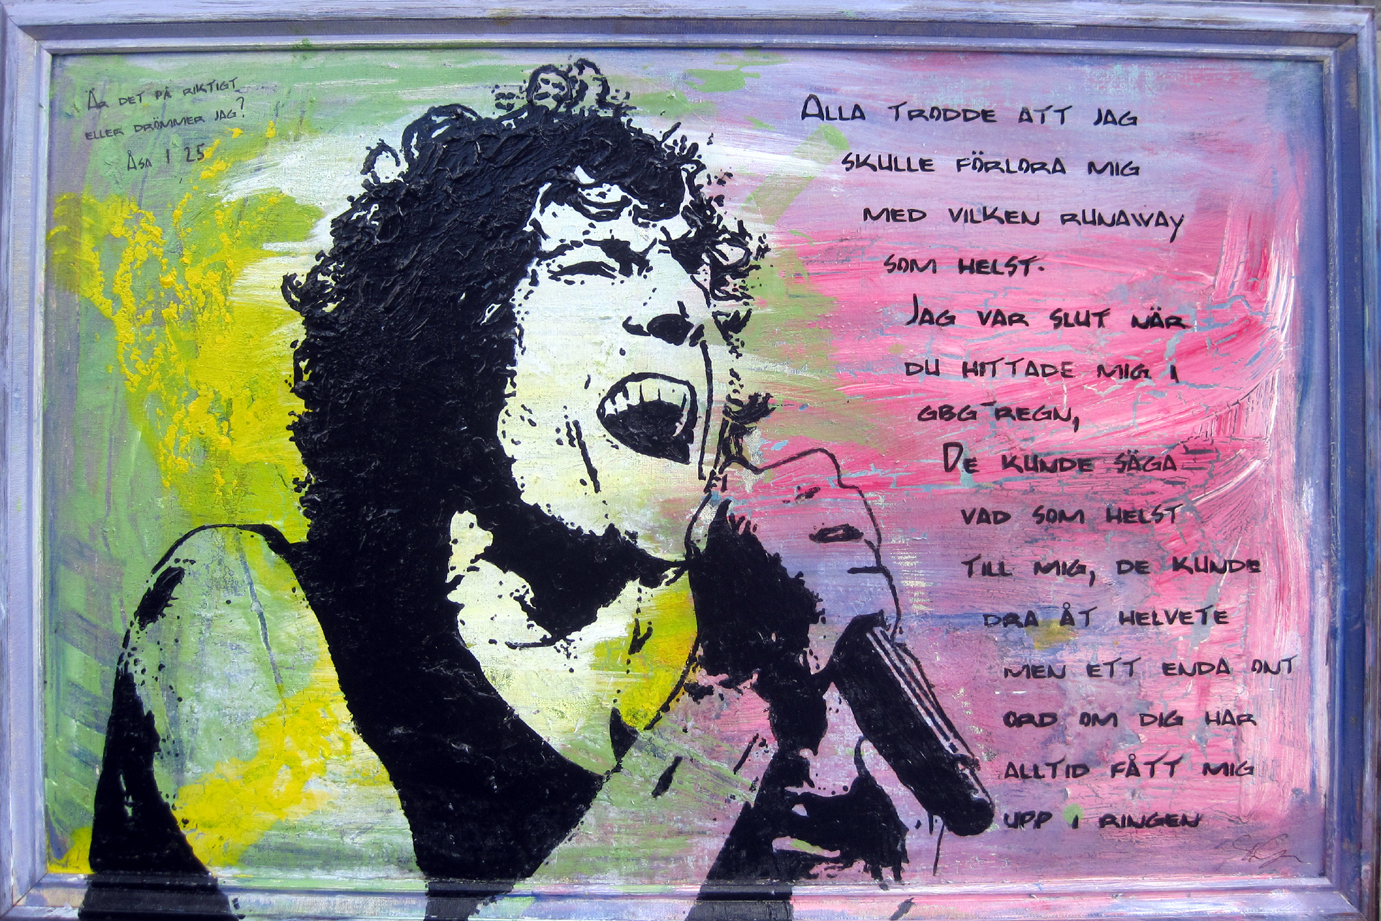 Är det på riktigt
eller drömmer jag?
Åsa 125
Alla trodde att jag
skulle förlora mig
med vilken runaway
som helst.
Jag var slut när
du hittade mig i
GBG-regn,
De kunde säga
vad som helst
till mig, de kunde
dra åt helvete
men ett enda ont
ord om dig har
alltid fått mig
upp i ringen